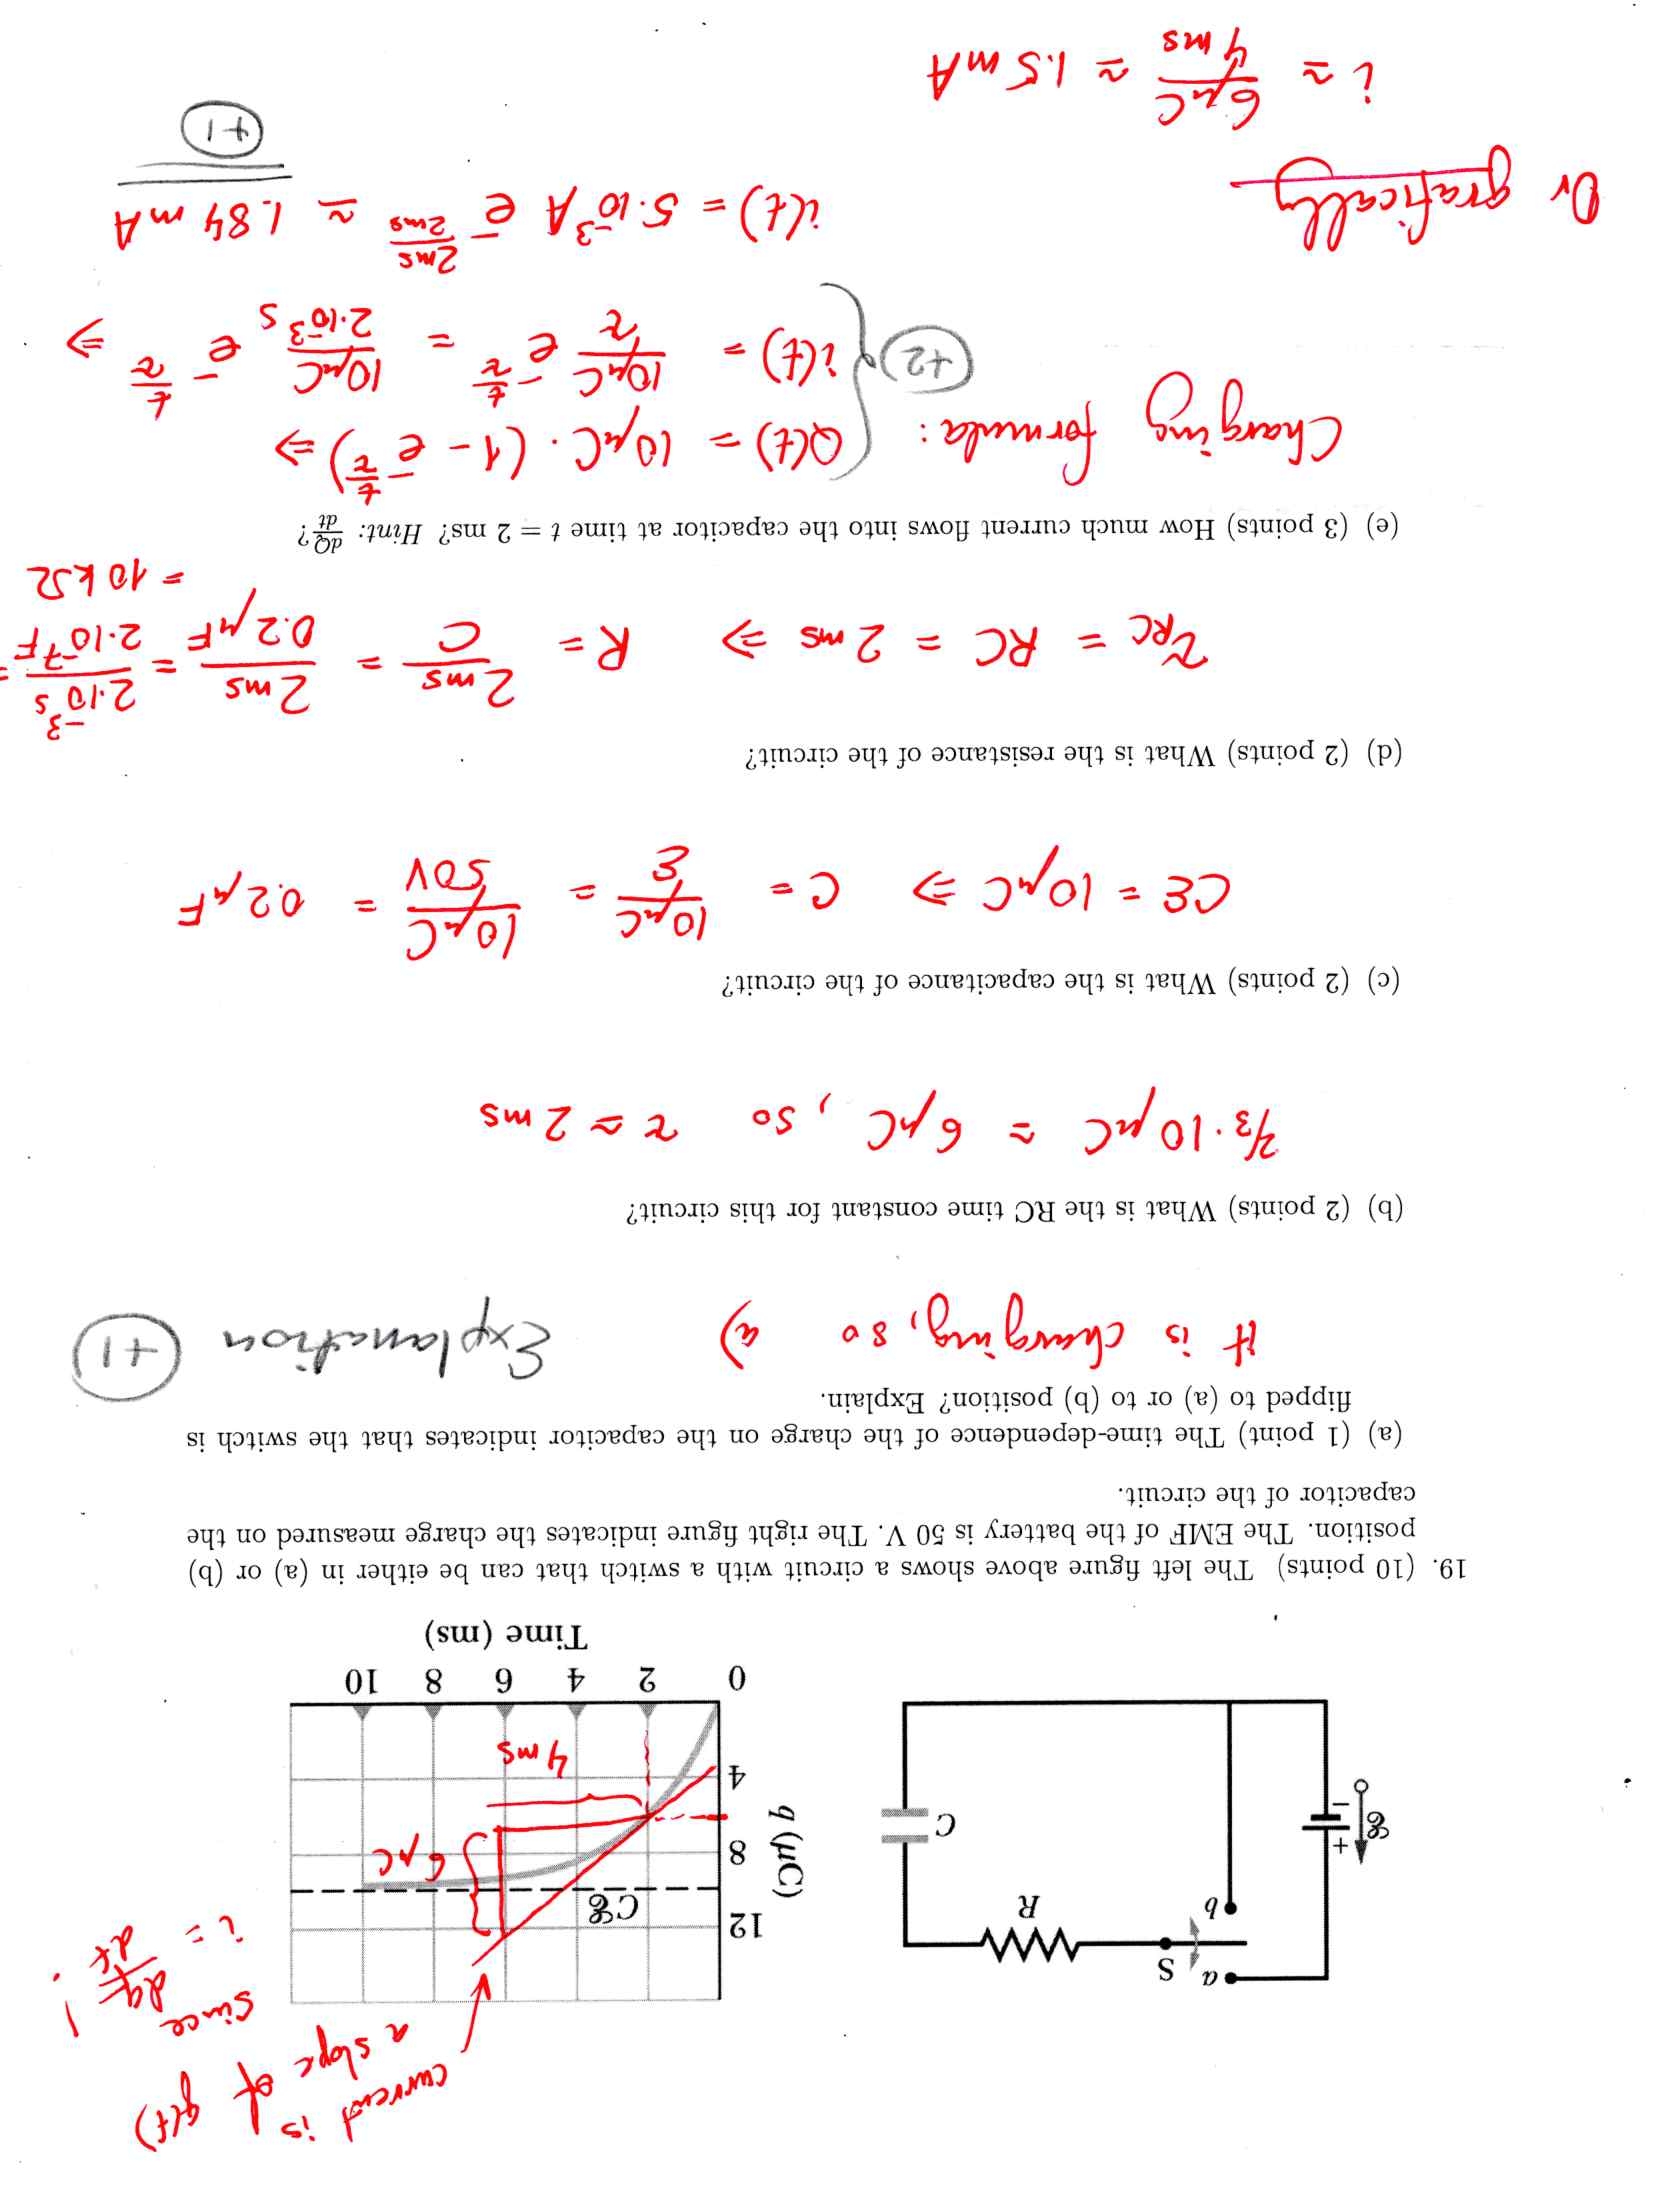 current is
a slope of q(t)
since
i = dq/dt !
a
S
b
R
C
ℰ
+
−
q (μC)
12
8
4
0
2
4
6
8
10
Time (ms)
Cℰ
6μC
4ms
19. (10 points) The left figure above shows a circuit with a switch that can be either in (a) or (b)
position. The EMF of the battery is 50 V. The right figure indicates the charge measured on the
capacitor of the circuit.
(a) (1 point) The time-dependence of the charge on the capacitor indicates that the switch is
flipped to (a) or to (b) position? Explain.
It is charging, so a) Explanation +1
(b) (2 points) What is the RC time constant for this circuit?
2/3·10μC ≈ 6μC, so τ ≈ 2ms
(c) (2 points) What is the capacitance of the circuit?
Cℰ = 10μC ⇒ C = 10μC/ℰ = 10μC/50V = 0.2μF
(d) (2 points) What is the resistance of the circuit?
τRC = RC = 2ms ⇒ R = 2ms/C = 2ms/0.2μF = 2·10⁻³s/2·10⁻⁷F =
= 10kΩ
(e) (3 points) How much current flows into the capacitor at time t = 2 ms? Hint: dQ/dt?
Charging formula: Q(t) = 10μC·(1 - e^-t/τ) ⇒
+2 i(t) = 10μC/τ e^-t/τ = 10μC/2·10⁻³s e^-t/τ ⇒
i(t) = 5·10⁻³A e^-2ms/2ms ≈ 1.84 mA
+1
Or grafically
i ≈ 6μC/4ms ≈ 1.5mA